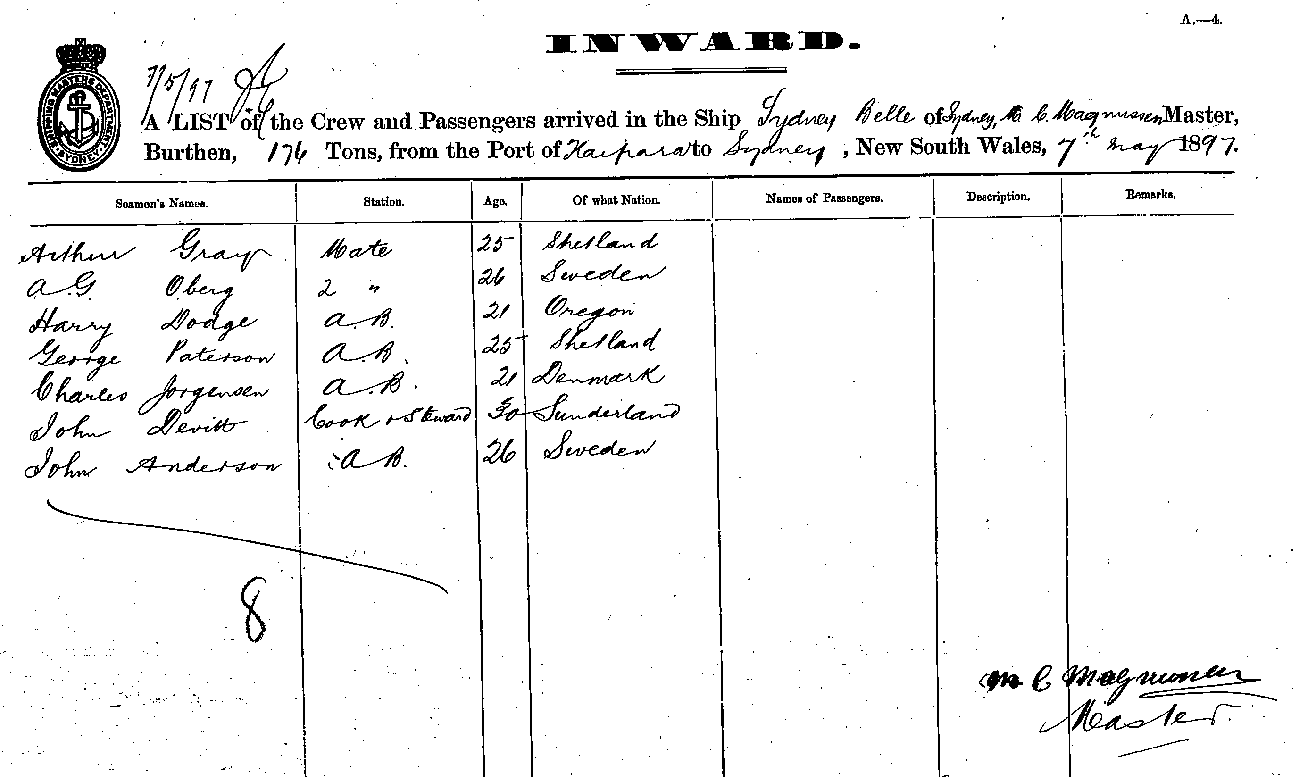 A.—4.
INWARD.
SHIPPING MASTERS DEPARTMENT SYDNEY
7/5/97
A LIST of the Crew and Passengers arrived in the Ship Sydney Belle of Sydney, M C. Magnussen Master,
Burthen, 176 Tons, from the Port of Kaipara to Sydney, New South Wales, 7th May 1897.
Seamen's Names. Station. Age. Of what Nation. Names of Passengers. Description. Remarks.
Arthur Gray Mate 25 Shetland
A. G. Oberg 2 " 26 Sweden
Harry Dodge A. B. 21 Oregon
George Paterson A. B. 25 Shetland
Charles Jorgensen A. B. 21 Denmark
John Devitt Cook & Steward 30 Sunderland
John Anderson A B. 26 Sweden
8
M C Magnussen
Master.